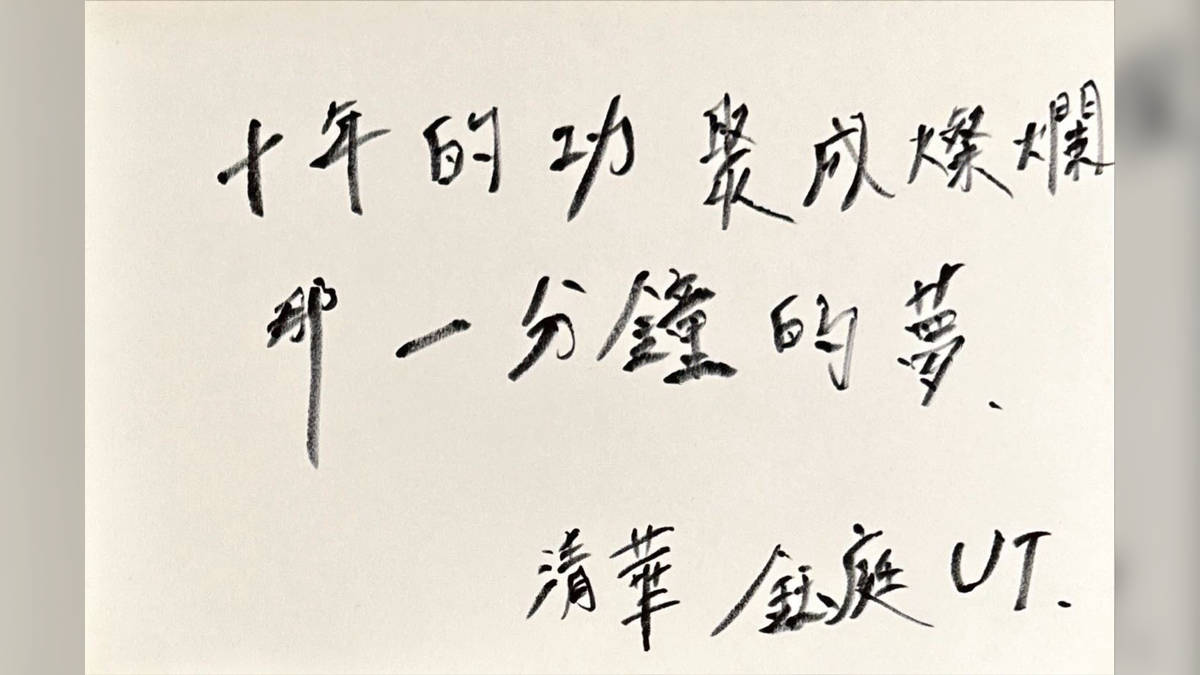 十年的功 聚成燦爛
那一分鐘的夢、
清華 鈺庭 UT.